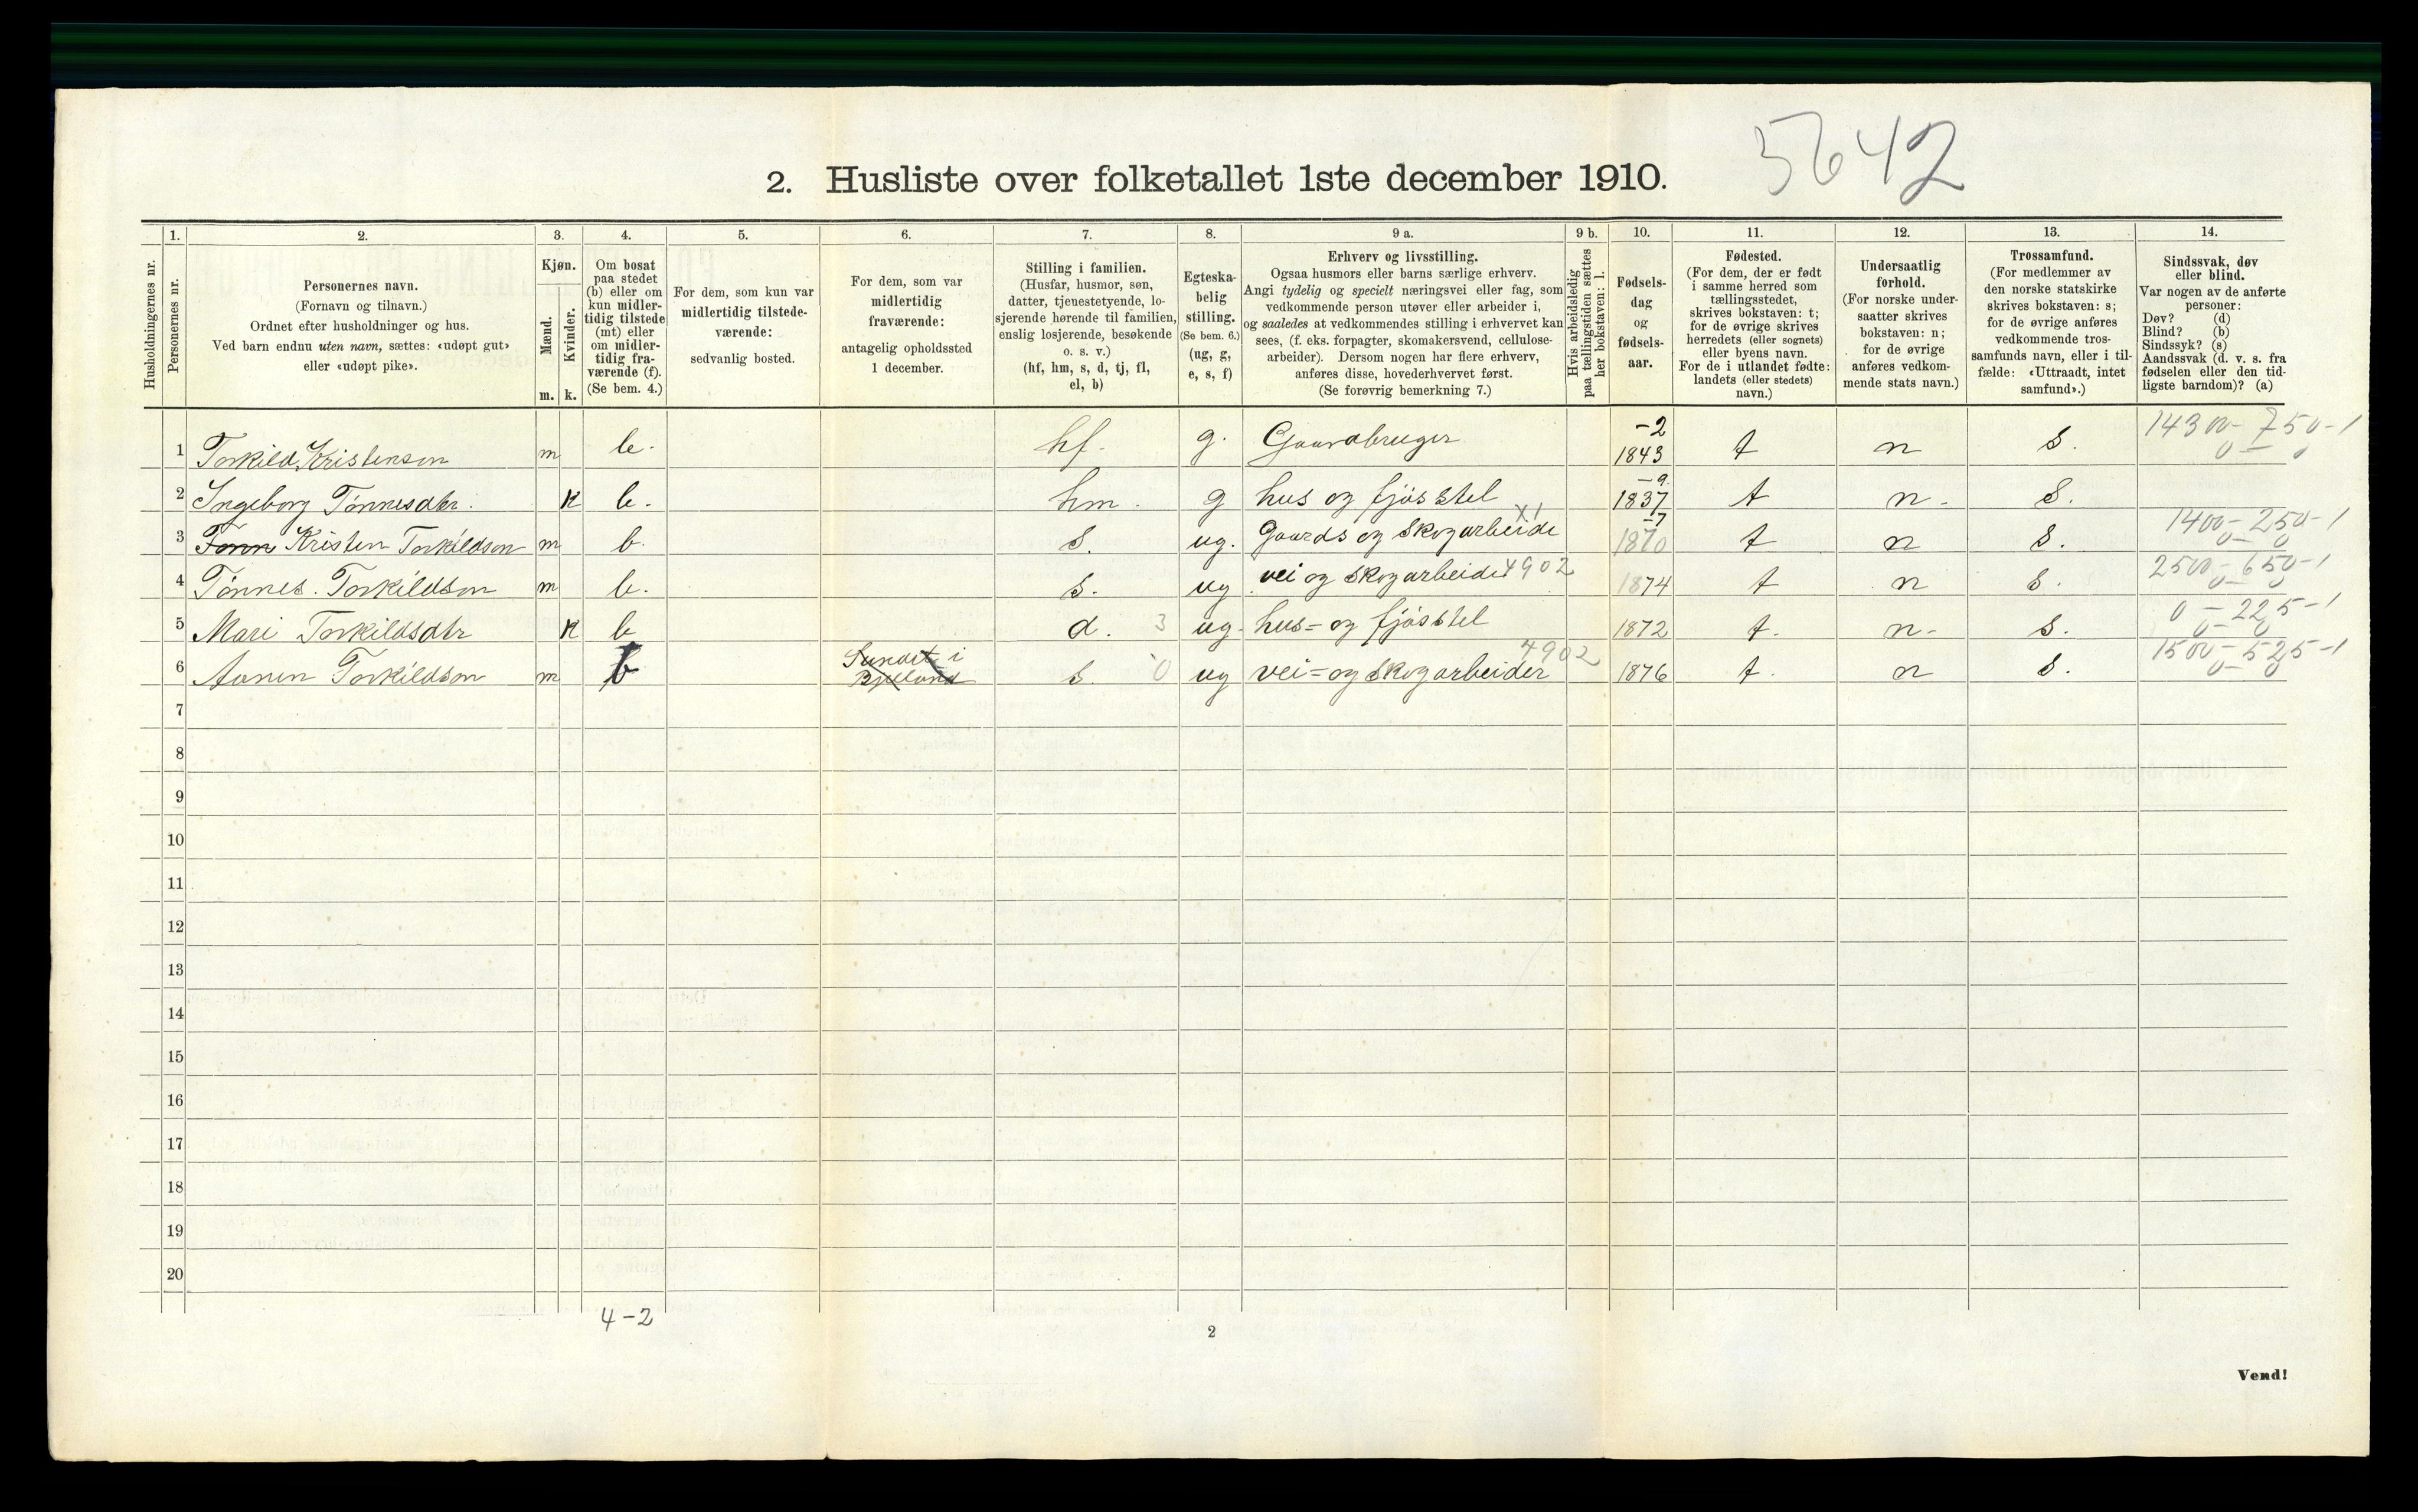 5642
2. Husliste over folketallet 1ste december 1910.
Husholdningernes nr.
1.
Personernes nr.
2.
Personernes navn.
(Fornavn og tilnavn.)
Ordnet efter husholdninger og hus.
Ved barn endnu uten navn, sættes: «udøpt gut»
eller «udøpt pike».
3.
Kjøn.
Mænd.
Kvinder.
m. k.
4.
Om bosat
paa stedet
(b) eller om
kun midler-
tidig tilstede
(mt) eller
om midler-
tidig fra-
værende (f).
(Se bem. 4.)
5.
For dem, som kun var
midlertidig tilstede-
værende:
sedvanlig bosted.
6.
For dem, som var
midlertidig
fraværende:
antagelig opholdssted
1 december.
7.
Stilling i familien.
(Husfar, husmor, søn,
datter, tjenestetyende, lo-
sjerende hørende til familien,
enslig losjerende, besøkende
o. s. v.)
(hf, hm, s, d, tj, fl,
el, b)
8.
Egteska-
belig
stilling.
(Se bem. 6.)
(ug, g,
e, s, f)
9 a.
Erhverv og livsstilling.
Ogsaa husmors eller barns særlige erhverv.
Angi tydelig og specielt næringsvei eller fag, som
vedkommende person utøver eller arbeider i,
og saaledes at vedkommendes stilling i erhvervet kan
sees, (f. eks. forpagter, skomakersvend, cellulose-
arbeider). Dersom nogen har flere erhverv,
anføres disse, hovederhvervet først.
(Se forøvrig bemerkning 7.)
9 b.
Hvis arbeidsledig
paa tællingstiden sættes
her bokstaven: l.
10.
Fødsels-
dag
og
fødsels-
aar.
11.
Fødested.
(For dem, der er født
i samme herred som
tællingsstedet,
skrives bokstaven: t;
for de øvrige skrives
herredets (eller sognets)
eller byens navn.
For de i utlandet fødte:
landets (eller stedets)
navn.)
12.
Undersaatlig
forhold.
(For norske under-
saatter skrives
bokstaven: n;
for de øvrige
anføres vedkom-
mende stats navn.)
13.
Trossamfund.
(For medlemmer av
den norske statskirke
skrives bokstaven: s;
for de øvrige anføres
vedkommende tros-
samfunds navn, eller i til-
fælde: «Uttraadt, intet
samfund».)
14.
Sindssvak, døv
eller blind.
Var nogen av de anførte
personer:
Døv? (d)
Blind? (b)
Sindssyk? (s)
Aandssvak (d. v. s. fra
fødselen eller den tid-
ligste barndom)? (a)
1 Torkild Kristenson m b. hf. g. Gaardbruger -2 1843 t n s. 14300-750-1 0-0
2 Ingeborg Tønnesdtr. k b. hm. g hus og fjøsstel -9. 1837 t n. s.
3 Kristen Torkildson m b. s. ug. Gaards og Skogarbeide X1 -7 1870 t n s. 1400-250-1 0-0
4 Tønnes. Torkildson m b. s. ug vei og Skogarbeider 4902 1874 t n s. 2500-650-1 0-0
5 Mari Torkildsdtr k b d. 3 ug. hus= og fjøsstel 1872 t. n. s. 0-225-1 0-0
6 Aanen Torkildson m b Sundet i Bjelland s. 0 ug vei= og Skogarbeider 4902 1876 t. n s. 1500-525-1 0-0
7
8
9
10
11
12
13
14
15
16
17
18
19
20
4-2
2
Vend!